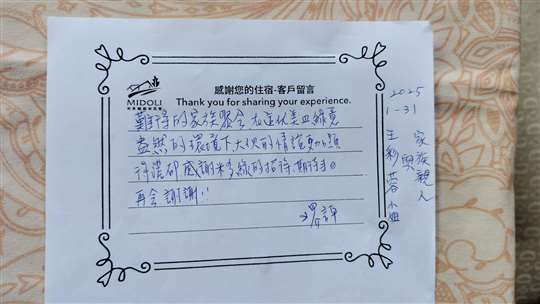 感謝您的住宿-客戶留言
MIDOLI
Thank you for sharing your experience.
難得的家族聚会在這优美且綠意
盎然的環境下大伙的情誼更加顯
得濃郁感謝米多綠的招待.期待
再会謝謝!!
2025
1-31
家族親人
與
王彩蓉小姐